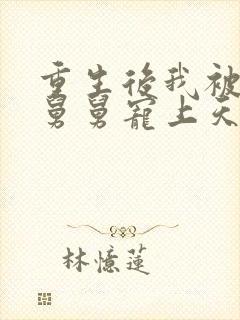 重生後我被
舅舅寵上天
林憶蓮